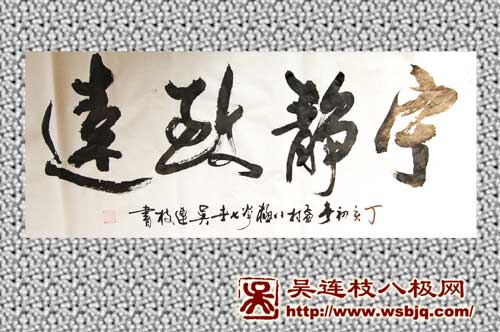 宁静致遠
丁亥初冬孟村八極拳七世吴連枝書
吴连枝八极网
http://www.wsbjq.com/